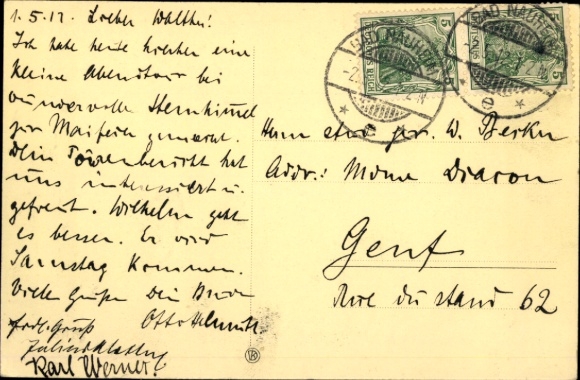 1.5.12. Lieber Walther!
Ich habe heute eine
kleine Abendtour bei
wundervollem Sternhimmel
zur Maifeier gemacht.
Dein Tourenbericht hat
uns interessiert u.
gefreut. Wilhelm geht
es besser. Er wird
Samstag kommen.
Viele Grüße Dein Bruder
Otto Helmuth.
frdl. Gruß
Karl Werner!
BAD NAUHEIM
BAD NAUHEIM
5
5
Herrn stud. jur. W. Becker
Addr.: Mome Diacon
Genf
Rue du stand 62